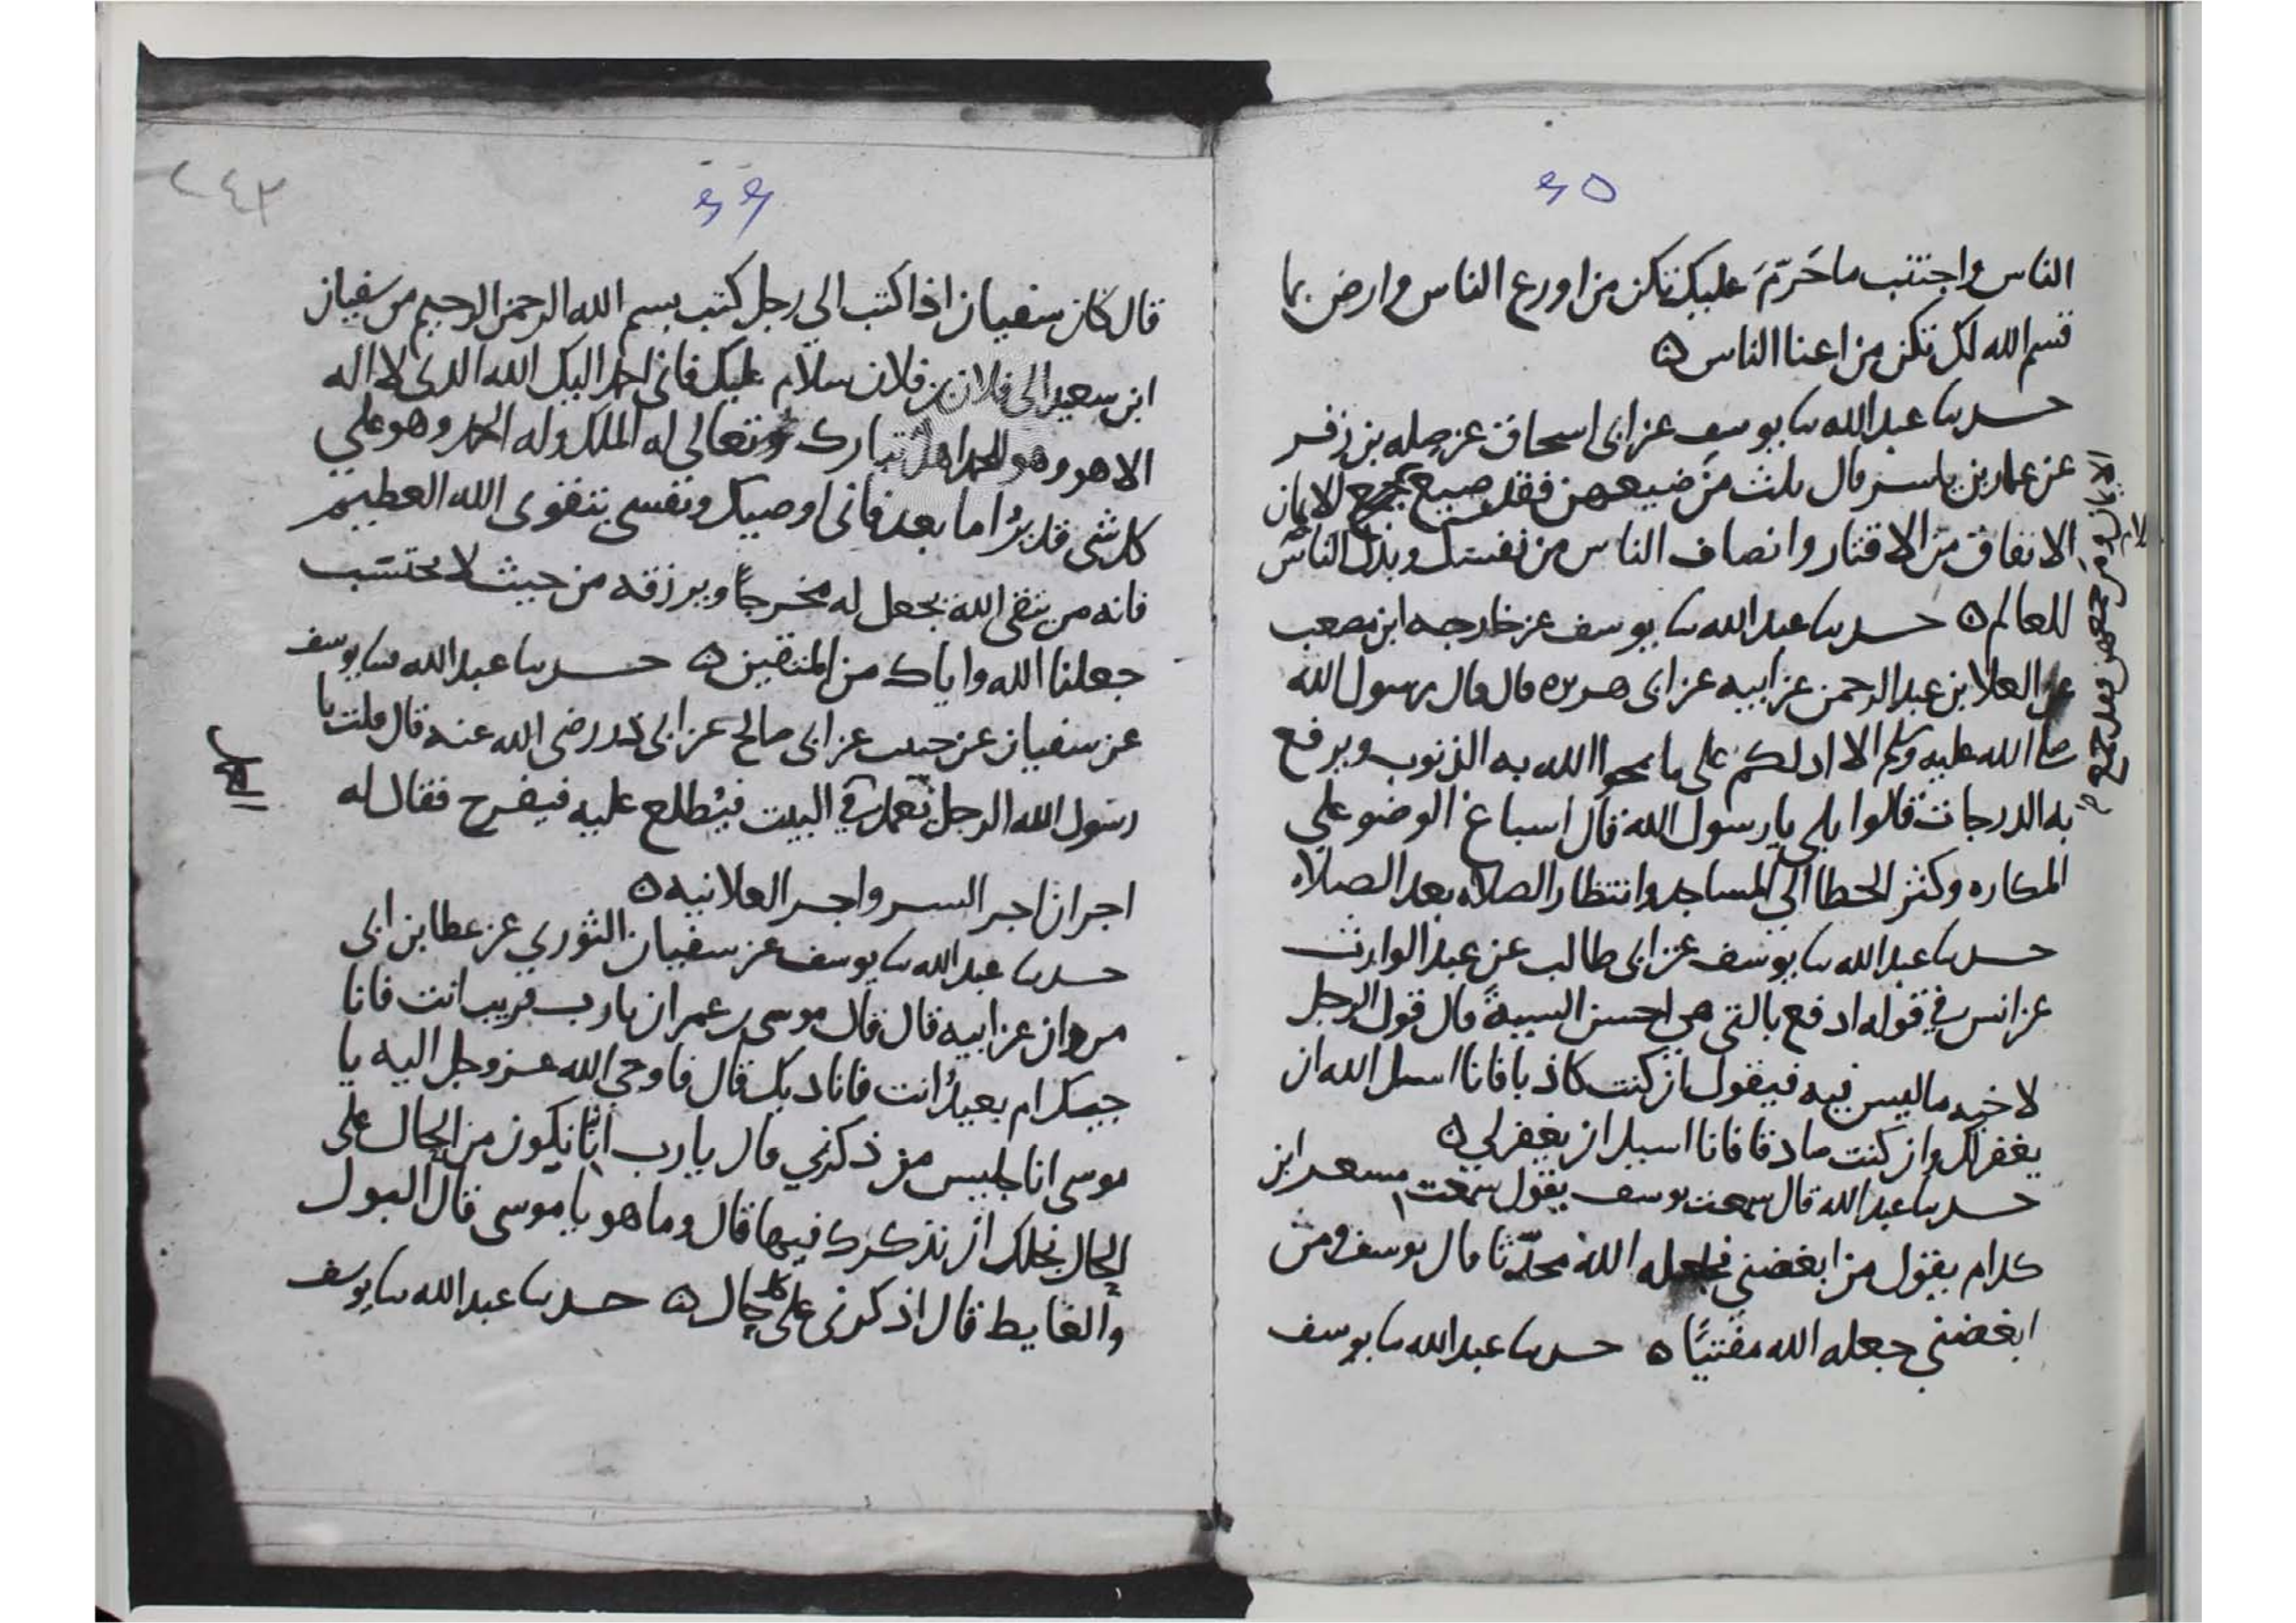 ٩٥
الناس واجتنب ما حَرّمَ عليك تكن من اورع الناس وارض بما
قسم الله لك تكن من اعنا الناس ٥
حدثنا عبدالله ثنا يوسف عن ابى اسحاق عن صله بن زفر
عن عمار بن ياسر قال ثلث من ضيعهن فقد ضيع الايمان
الانفاق من الاقتار وانصاف الناس من نفسك وبذل
للعالم ٥ حدثنا عبدالله ثنا يوسف عن خارجه ابن مصعب
عن العلا بن عبدالرحمن عن ابيه عن ابى هريره قال قال رسول الله
صلى الله عليه وسلم الا ادلكم على ما يمحوا الله به الذنوب ويرفع
به الدرجات قالوا بلى يا رسول الله قال اسباغ الوضو على
المكاره وكثر الخطا الى المساجد وانتظار الصلاه بعد الصلاه
حدثنا عبدالله ثنا يوسف عن ابى طالب عن عبد الوارث
عن انس في قوله ادفع بالتى هي احسن السيية قال قول الرجل
لاخيه ما ليس فيه فيقول ان كنت كاذبا فانا اسل الله ان
يغفر لك وان كنت صادقا فانا اسيل ان يغفر لي ٥
حدثنا عبدالله قال سمعت يوسف يقول سمعت مسعر ابن
كدام يقول من ابغضني فجعله الله محدّثا قال يوسف ومن
ابغضني جعله الله مفتيًا ٥ حدثنا عبدالله ثنا يوسف
الايمان ومن جمعهن فقد جمع
٢٤٣
٩٦
قال كان سفيان اذا كتب الي رجل كتب بسم الله الرحمن الرحيم من سفيان
ابن سعيد الى فلان بن فلان سلام عليك فانى احمد اليك الله الذى لا اله
الا هو وهو للحمد اهل تبارك وتعالى له الملك وله الحمد وهو علي
كل شى قدير اما بعد فانى اوصيك ونفسى بتقوى الله العظيم
فانه من يتقى الله يجعل له مخرجاً ويرزقه من حيث لا يحتسب
جعلنا الله واياك من المتقين ٥ حدثنا عبدالله ثنا يوسف
عن سفيان عن حبيب عن ابى صالح عن ابى ذر رضى الله عنه قال قلت يا
رسول الله الرجل يعمل في البيت فيُطلع عليه فيفرح فقال له
اجران اجر السر واجر العلانيه ٥
حدثنا عبدالله ثنا يوسف عن سفيان الثوري عن عطا بن ابى
مروان عن ابيه قال قال موسى بن عمران يا رب قريب انت فانا
جيك ام بعيدُ انت فاناديك قال فاوحي الله عز وجل اليه يا
موسى انا جليس من ذكرني قال يا رب انا نكون من الحال على
الحال نجلك ان نذكرك فيها قال وما هو يا موسى قال البول
والغايط قال اذكرنى على كل حال ٥ حدثنا عبدالله ثنا يوسف